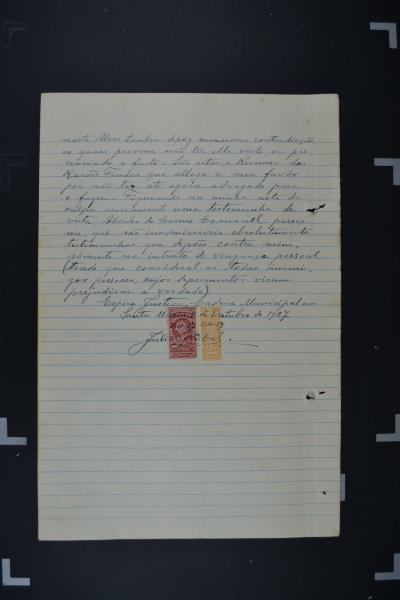 narte Alves tambem depoz numerosas contradicções
as quaes provam não ter elle visto, ou pre-
senciado, o facto. São estas, o Resumo das
Razões Finaes que allego a meu favor
por não ter até agora advogado para
o fazer. Figurando na minha nota de
culpa unicamente uma testemunha de
vista do Carmo Coronel, parece
me, que são inadmissiveis absolutamente
testimunhas que depõe contra mim,
sómente no intuito de vingança pessoal
(tendo que consideral-as todas inimi-
gos pessoaes, cujos depoimentos visam
prejudicar a verdade)
Espera Justiça, Cadeia Municipal em
Santa de Outubro de 1907